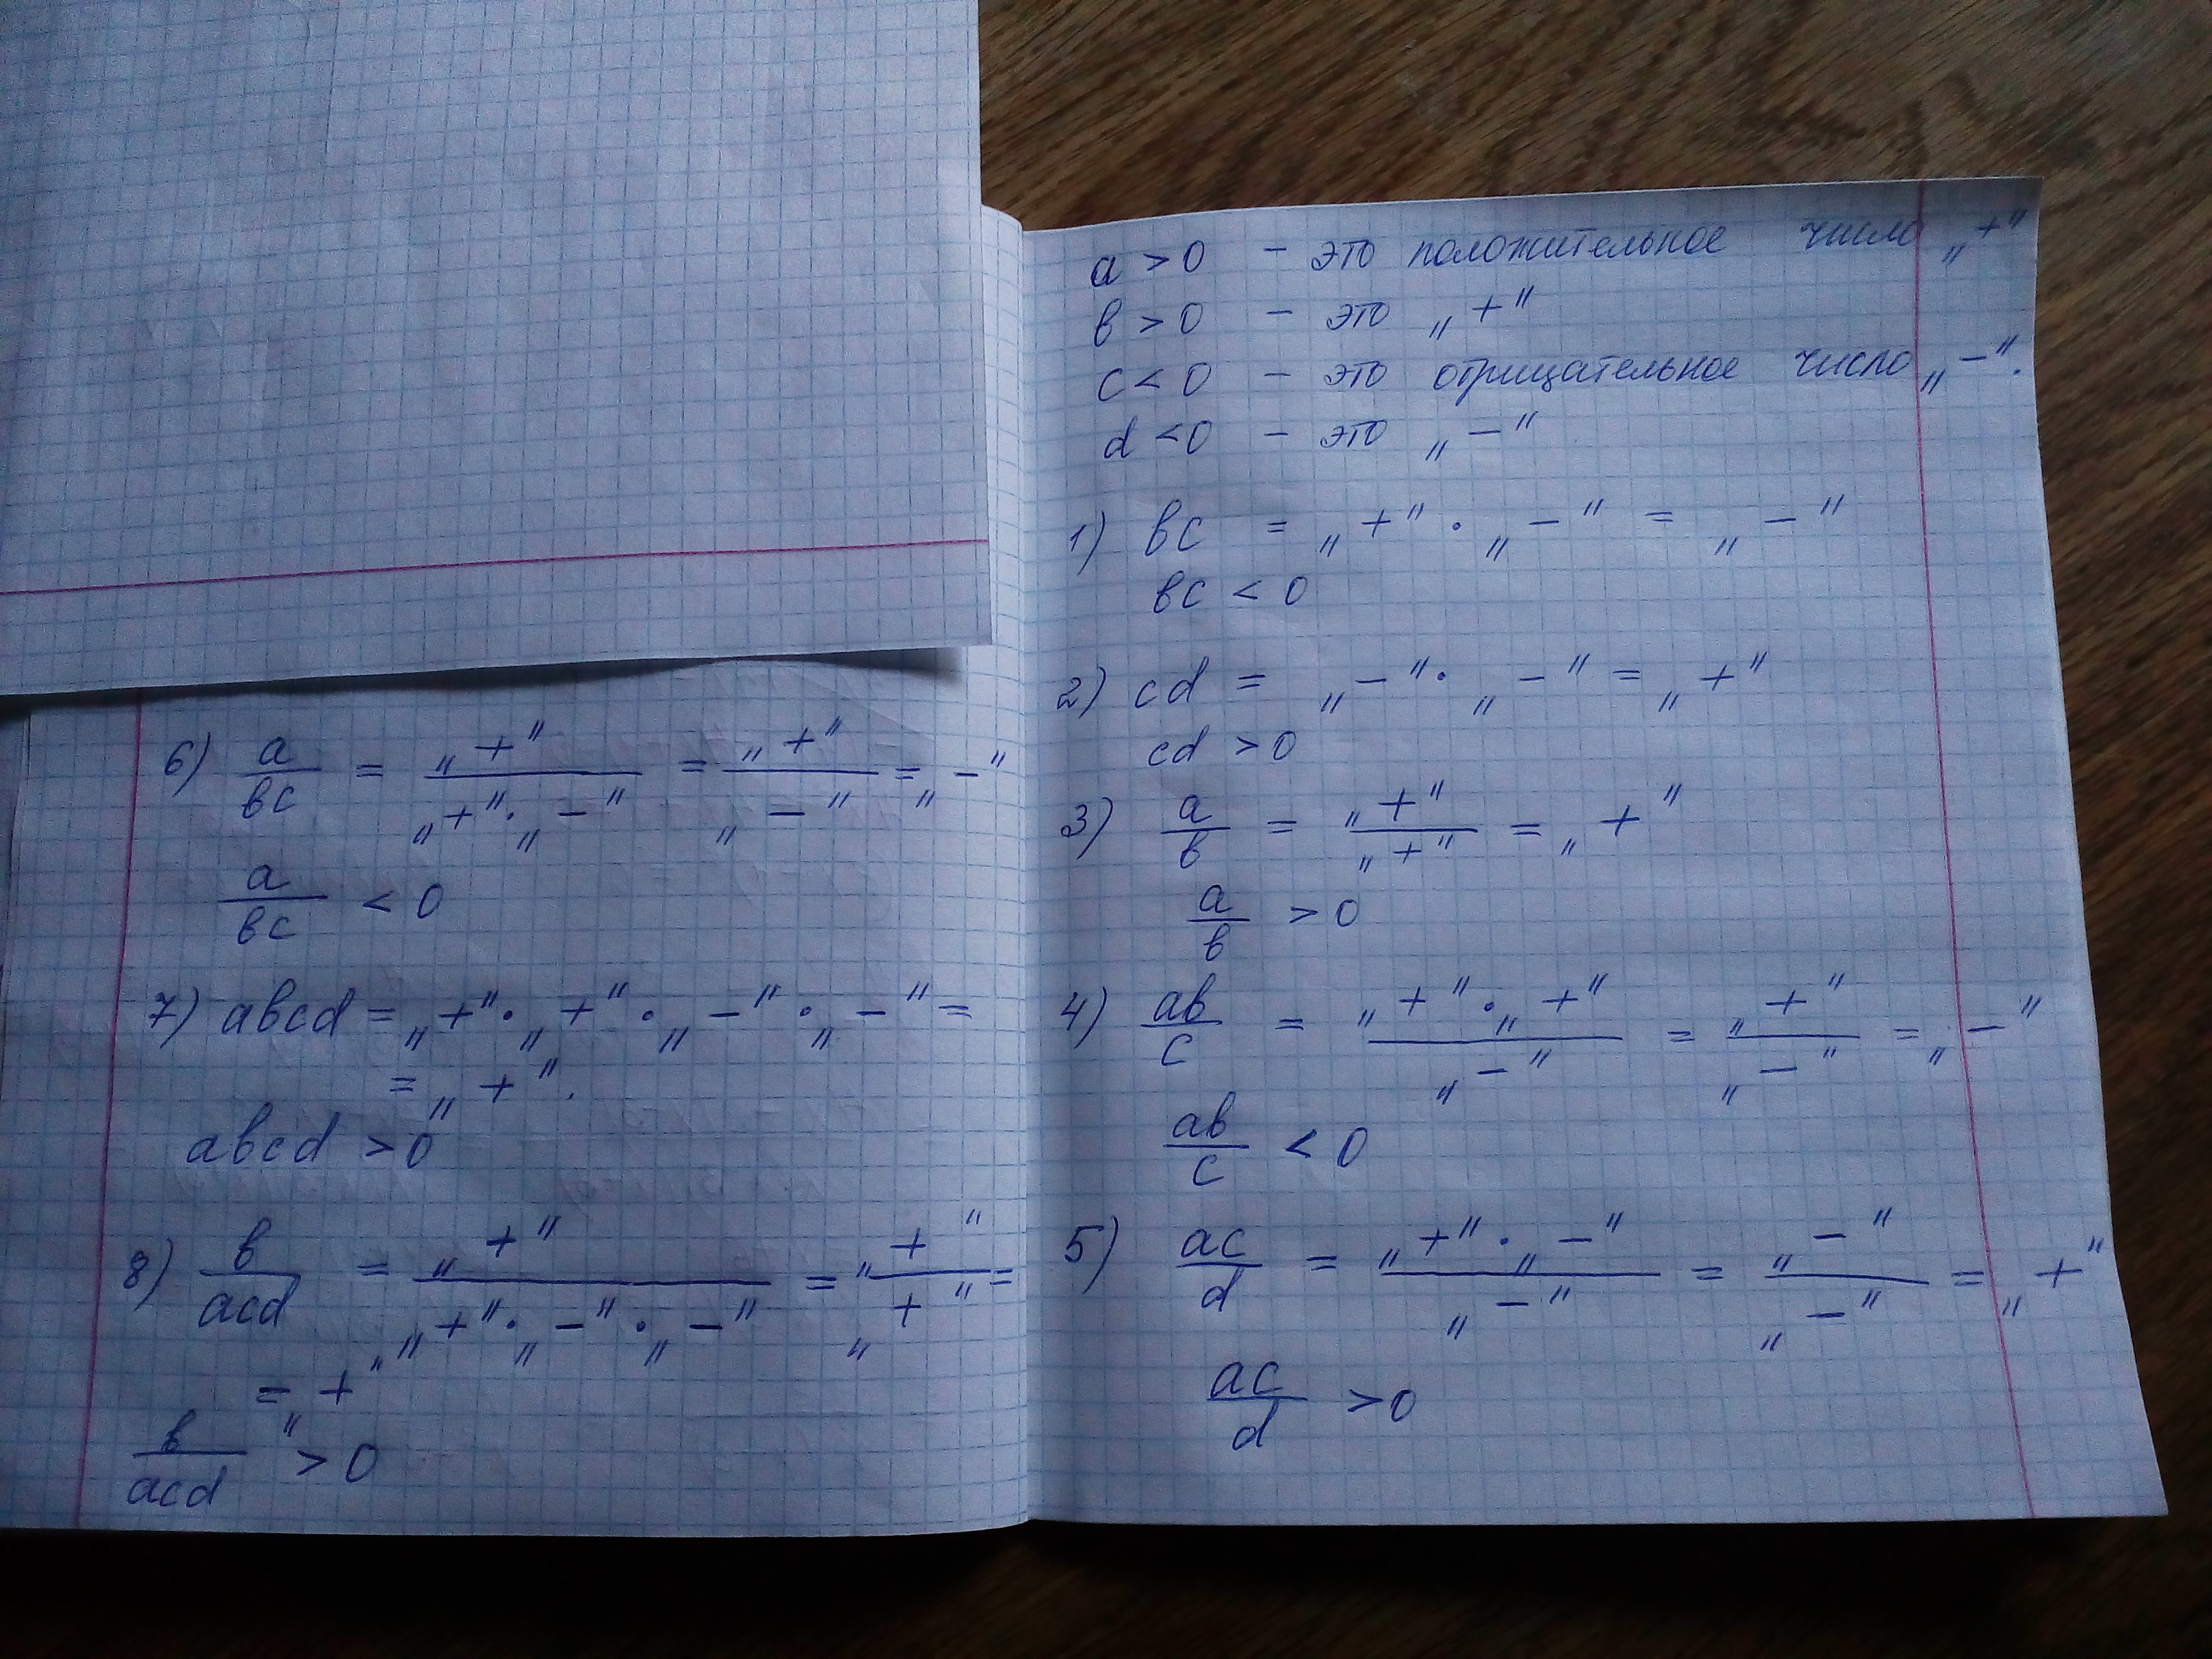 a > 0 – это положительное число „+"
в > 0 – это „+"
c < 0 – это отрицательное число „–".
d < 0 – это „–"
1) вc = „+" · „–" = „–"
вc < 0
2) cd = „–" · „–" = „+"
cd > 0
3) a/в = „+"/„+" = „+"
a/в > 0
4) aв/c = „+" · „+"/„–" = „+"/„–" = „–"
aв/c < 0
5) ac/d = „+" · „–"/„–" = „–"/„–" = „+"
ac/d > 0
6) a/вc = „+"/„+" · „–" = „+"/„–" = „–"
a/вc < 0
7) aвcd = „+" · „+" · „–" · „–" =
= „+".
aвcd > 0
8) в/acd = „+"/„+" · „–" · „–" = „+"/„+" =
= „+"
в/acd > 0